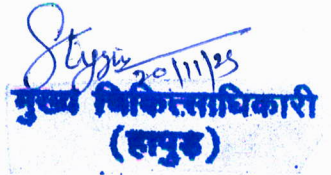 20/11/25
मुख्य चिकित्साधिकारी
(हापुड़)